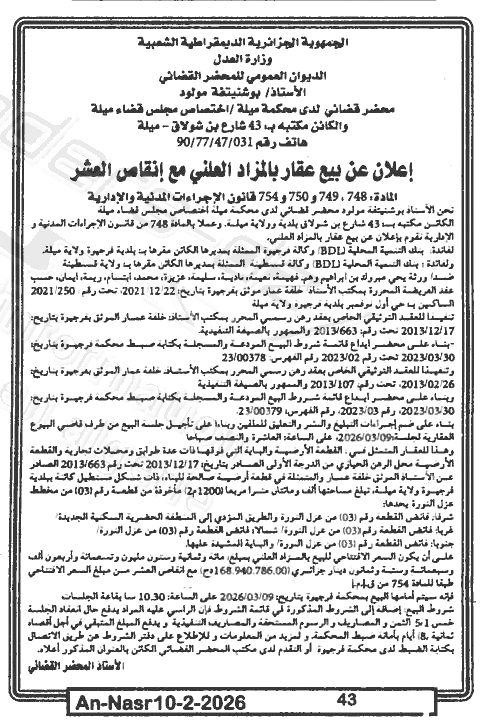 الجمهورية الجزائرية الديمقراطية الشعبية
وزارة العدل
الديوان العمومي للمحضر القضائي
الأستاذ/ بوشنيتفة مولود
محضر قضائي لدى محكمة ميلة /اختصاص مجلس قضاء ميلة
والكائن مكتبه بـ: 43 شارع بن شولاق – ميلة
هاتف رقم 90/77/47/031
إعلان عن بيع عقار بالمزاد العلني مع إنقاص العشر
المادة: 748، 749 و 750 و 754 قانون الإجراءات المدنية والإدارية
نحن الأستاذ بوشنيتفة مولود محضر قضائي لدى محكمة ميلة اختصاص مجلس قضاء ميلة
الكائن مكتبه بـ: 43 شارع بن شولاق بلدية وولاية ميلة. وعملا بالمادة 748 من قانون الإجراءات المدنية و
الإدارية نقوم بإعلان عن بيع عقار بالمزاد العلني.
لفائدة: بنك التنمية المحلية (BDL) وكالة فرجيوة الممثلة بمديرها الكائن مقرها بـ: بلدية فرجيوة ولاية ميلة.
ولفائدة: بنك التنمية المحلية (BDL) وكالة قسنطينة الممثلة بمديرها الكائن مقرها بـ: ولاية قسنطينة
ضد/ ورثة يحي مبروك بن ابراهيم وهم: فهيمة، نعيمة، نادية، سليمة، عزيزة، محمد، ابتسام، ريمة، إيمان، حسب
عقد الفريضة المحررة بمكتب الأستاذ خلفة عمار موثق بفرجيوة بتاريخ: 2021/12/22، تحت رقم 2021/250
الساكنين بـ حي أول نوفمبر بلدية فرجيوة ولاية ميلة
تنفيذا للعقد التوثيقي الخاص بعقد رهن رسمي المحرر بمكتب الأستاذ: خلفة عمار الموثق بفرجيوة بتاريخ:
2013/12/17 تحت رقم 2013/663 والممهور بالصيغة التنفيذية.
-بناء على محضر إيداع قائمة شروط البيع المودعة والمسجلة بكتابة ضبط محكمة فرجيوة بتاريخ:
2023/03/30 تحت رقم 2023/02 رقم الفهرس: 23/00378
وتنفيذا للعقد التوثيقي الخاص بعقد رهن رسمي المحرر بمكتب الأستاذ: خلفة عمار الموثق بفرجيوة بتاريخ:
2013/02/26، تحت رقم: 2013/107 والممهور بالصيغة التنفيذية
وبناء على محضر إيداع قائمة شروط البيع المودعة والمسجلة بكتابة ضبط محكمة فرجيوة بتاريخ:
2023/03/30، رقم 2023/03، رقم الفهرس: 23/00379.
بناء على ضم إجراءات التبليغ والنشر والتعليق للملفين وبناءا على تأجيل جلسة البيع من طرف قاضي البيوع
العقارية لجلسة: 2026/03/09، على الساعة: العاشرة والنصف صباحا
وهذا للعقار المتمثل في: القطعة الأرضية والبناية التي فوقها ذات عدة طوابق ومحلات تجارية والقطعة
الأرضية محل الرهن الحيازي من الدرجة الأولى الصادر بتاريخ: 2013/12/17 تحت رقم 2013/663 الصادر
عن الأستاذ الموثق خلفة عمار والمتمثلة في قطعة أرضية صالحة للبناء، ذات شكل مستطيل كائنة ببلدية
فرجيوة ولاية ميلة، تبلغ مساحتها ألف ومائتان مترا مربعا (1200م2) مأخوذة من قطعة رقم (03) من مخطط
عزل النورة يحدها:
شرقا: فائض القطعة رقم (03) من عزل النورة والطريق المؤدي إلى المنطقة الحضرية السكنية الجديدة/
غربا: فائض القطعة رقم (03) من عزل النورة/ شمالا: فائض القطعة رقم (03) من عزل النورة/
جنوبا: فائض القطعة رقم (03) من عزل النورة/ والبناية المشيدة عليها.
على أن يكون السعر الافتتاحي للبيع بالمزاد العلني بمبلغ: مائة وثمانية وستون مليون وتسعمائة وأربعون ألف
وسبعمائة وستة وثمانون دينار جزائري (168.940.786.00دج) مع إنقاص العشر من مبلغ السعر الافتتاحي
طبقا للمادة 754 من ق.إ.م.إ
فإنه سيتم أمامها البيع بمحكمة فرجيوة بتاريخ: 2026/03/09 على الساعة: 10.30 سا بقاعة الجلسات
شروط البيع: إضافة إلى الشروط المذكورة في قائمة الشروط فإن الراسي عليه المزاد يدفع حال انعقاد الجلسة
خمس 1/5 الثمن و المصاريف و الرسوم المستحقة والمصاريف التنفيذية و يدفع المبلغ المتبقي في أجل أقصاه
ثمانية (8) أيام بأمانة ضبط المحكمة. و لمزيد من المعلومات و للإطلاع على دفتر الشروط عن طريق الاتصال
بكتابة الضبط لدى محكمة فرجيوة أو التقدم لدى مكتب المحضر القضائي الكائن بالعنوان المذكور أعلاه.
الأستاذ المحضر القضائي
An-Nasr10-2-2026
43